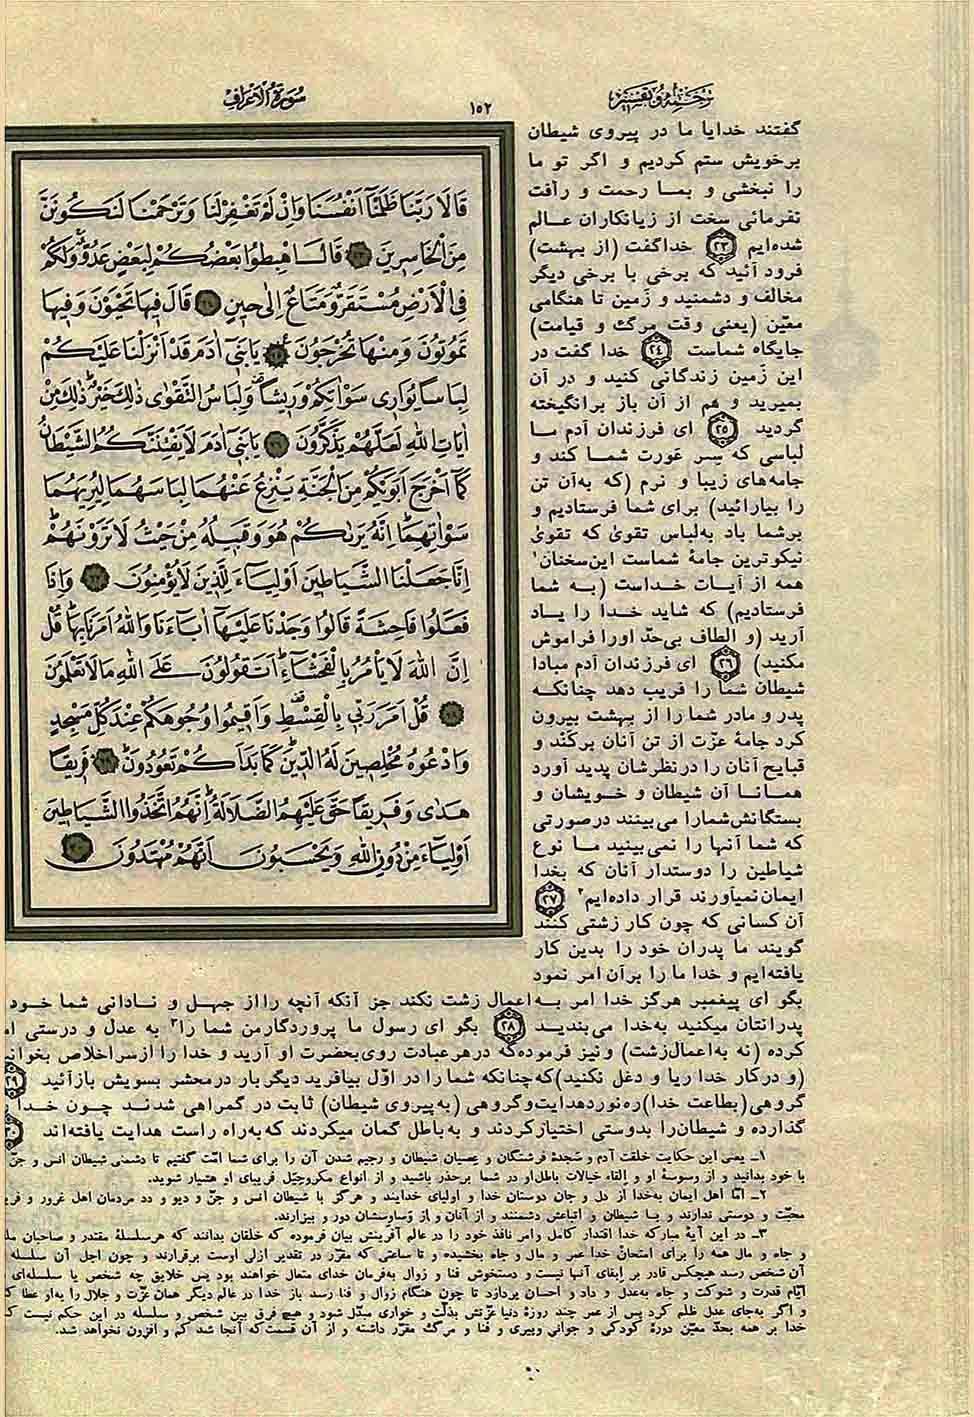 ترجمه و تفسیر
۱۵۲
سورة الاعراف
گفتند خدایا ما در پیروی شیطان
برخویش ستم کردیم و اگر تو ما
را نبخشی و بما رحمت و رأفت
نفرمائی سخت از زیانکاران عالم
شده‌ایم ۲۳ خداگفت (از بهشت)
فرود آئید که برخی با برخی دیگر
مخالف و دشمنید و زمین تا هنگامی
معیّن (یعنی وقت مرگ و قیامت)
جایگاه شماست ۲۴ خدا گفت در
این زمین زندگانی کنید و در آن
بمیرید و هم از آن باز برانگیخته
گردید ۲۵ ای فرزندان آدم ما
لباسی که سِر عَورت شما کند و
جامه‌های زیبا و نرم (که به‌آن تن
را بیارائید) برای شما فرستادیم و
برشما باد به‌لباس تقویٰ که تقویٰ
نیکوترین جامهٔ شماست این‌سخنان۱
همه از آیات خداست (به شما
فرستادیم) که شاید خدا را یاد
آرید (و الطاف بی‌حدّ اورا فراموش
مکنید) ۲۶ ای فرزندان آدم مبادا
شیطان شما را فریب دهد چنانکه
پدر و مادر شما را از بهشت بیرون
کرد جامهٔ عزّت از تن آنان برکند و
قبایح آنان را درنظرشان پدید آورد
همانا آن شیطان و خویشان و
بستگانش‌شمارا می‌بینند درصورتی
که شما آنها را نمی‌بینید ما نوع
شیاطین را دوستدار آنان که بخدا
ایمان‌نمیآورند قرار داده‌ایم۲ ۲۷
آن کسانی که چون کار زشتی کنند
گویند ما پدران خود را بدین کار
یافته‌ایم و خدا ما را برآن امر نمود
بگو ای پیغمبر هرگز خدا امر به‌اعمال زشت نکند جز آنکه آنچه را از جهل و نادانی شما خود
پدرانتان میکنید به‌خدا می‌بندید ۲۸ بگو ای رسول ما پروردگارمن شما را۳ به عدل و درستی
کرده (نه به‌اعمال‌زشت) و نیز فرموده‌که درهرعبادت روی‌بحضرت او آرید و خدا را ازسراخلاص
(و درکار خدا ریا و دغل نکنید)که‌چنانکه شما را در اوّل بیافرید دیگر بار درمحشر بسویش بازآئید ۲۹
گروهی(بطاعت خدا)ره‌نوردهدایت‌وگروهی (به‌پیروی شیطان) ثابت در گمراهی شدند چون خدا
گذارده و شیطان‌را بدوستی اختیارکردند و به‌باطل گمان میکردند که‌به‌راه راست هدایت یافته‌اند ۳۰
قَالَا رَبَّنَا ظَلَمْنَا أَنْفُسَنَا وَإِنْ لَمْ تَغْفِرْ لَنَا وَتَرْحَمْنَا لَنَكُونَنَّ
مِنَ الْخَاسِرِينَ ۲۳ قَالَ اهْبِطُوا بَعْضُكُمْ لِبَعْضٍ عَدُوٌّ وَلَكُمْ
فِي الْأَرْضِ مُسْتَقَرٌّ وَمَتَاعٌ إِلَى حِينٍ ۲۴ قَالَ فِيهَا تَحْيَوْنَ وَفِيهَا
تَمُوتُونَ وَمِنْهَا تُخْرَجُونَ ۲۵ يَا بَنِي آدَمَ قَدْ أَنْزَلْنَا عَلَيْكُمْ
لِبَاسًا يُوَارِي سَوْآتِكُمْ وَرِيشًا وَلِبَاسُ التَّقْوَى ذَلِكَ خَيْرٌ ذَلِكَ مِنْ
آيَاتِ اللَّهِ لَعَلَّهُمْ يَذَّكَّرُونَ ۲۶ يَا بَنِي آدَمَ لَا يَفْتِنَنَّكُمُ الشَّيْطَانُ
كَمَا أَخْرَجَ أَبَوَيْكُمْ مِنَ الْجَنَّةِ يَنْزِعُ عَنْهُمَا لِبَاسَهُمَا لِيُرِيَهُمَا
سَوْآتِهِمَا إِنَّهُ يَرَاكُمْ هُوَ وَقَبِيلُهُ مِنْ حَيْثُ لَا تَرَوْنَهُمْ
إِنَّا جَعَلْنَا الشَّيَاطِينَ أَوْلِيَاءَ لِلَّذِينَ لَا يُؤْمِنُونَ ۲۷ وَإِذَا
فَعَلُوا فَاحِشَةً قَالُوا وَجَدْنَا عَلَيْهَا آبَاءَنَا وَاللَّهُ أَمَرَنَا بِهَا قُلْ
إِنَّ اللَّهَ لَا يَأْمُرُ بِالْفَحْشَاءِ أَتَقُولُونَ عَلَى اللَّهِ مَا لَا تَعْلَمُونَ
۲۸ قُلْ أَمَرَ رَبِّي بِالْقِسْطِ وَأَقِيمُوا وُجُوهَكُمْ عِنْدَ كُلِّ مَسْجِدٍ
وَادْعُوهُ مُخْلِصِينَ لَهُ الدِّينَ كَمَا بَدَأَكُمْ تَعُودُونَ ۲۹ فَرِيقًا
هَدَى وَفَرِيقًا حَقَّ عَلَيْهِمُ الضَّلَالَةُ إِنَّهُمُ اتَّخَذُوا الشَّيَاطِينَ
أَوْلِيَاءَ مِنْ دُونِ اللَّهِ وَيَحْسَبُونَ أَنَّهُمْ مُهْتَدُونَ ۳۰
۱ــ یعنی این حکایت خلقت آدم و سَجدهٔ فرشتگان و عصیان شیطان و رجیم شدن آن را برای شما امّت گفتیم تا دشمنی شیطان انس و جنّ
با خود بدانید و از وسوسهٔ او و اِلقاء خیالات باطل‌او در شما برحذر باشید و از انواع مکروحیَل فریبای او هشیار شوید.
۲ــ امّا اهل ایمان به‌خدا از دل و جان دوستان خدا و اولیای خدایند و هرگز با شیطان انس و جنّ و دیو و دد مردمان اهل غرور و
محبّت و دوستی ندارند و بـا شیطان و اتباعش دشمنند و از آنان و از وَساوسشان دور و بیزارند.
۳ــ در این آیهٔ مبارکه خدا اقتدار کامل وامر نافذ خود را در عالم آفرینش بیان فرموده که خلقان بدانند که هرسلسلهٔ مقتدر و صاحبان
و جاه و مال همه را برای امتحان خدا عمر و مال و جاه بخشیده و تا ساعتی که مقرّر در تقدیر ازلی اوست برقرارند و چون اجل آن سلسله
آن شخص رسد هیچکس قادر بر اِبقای آنها نیست و دستخوش فنا و زوال به‌فرمان خدای متعال خواهند بود پس خلایق چه شخص یا سلسله‌ای
ایّام قدرت و شوکت و جاه به‌عدل و داد و احسان پردازد تا چون هنگام زوال و فنا رسد باز خدا در عالم دیگر همان عزّت و جلال را به‌او عطا
و اگر به‌جای عدل ظلم کرد پس از عمر چند روزهٔ دنیا عزّتش بذلّت و خواری مبدّل شود و هیچ فرق بین شخص و سلسله در این حکم نیست
خدا بر همه بحدّ معیّن دورهٔ کودکی و جوانی وپیری و فنا و مرگ مقرّر داشته و از آن قسمت‌که آنجا شد کم و افزون نخواهد شد.